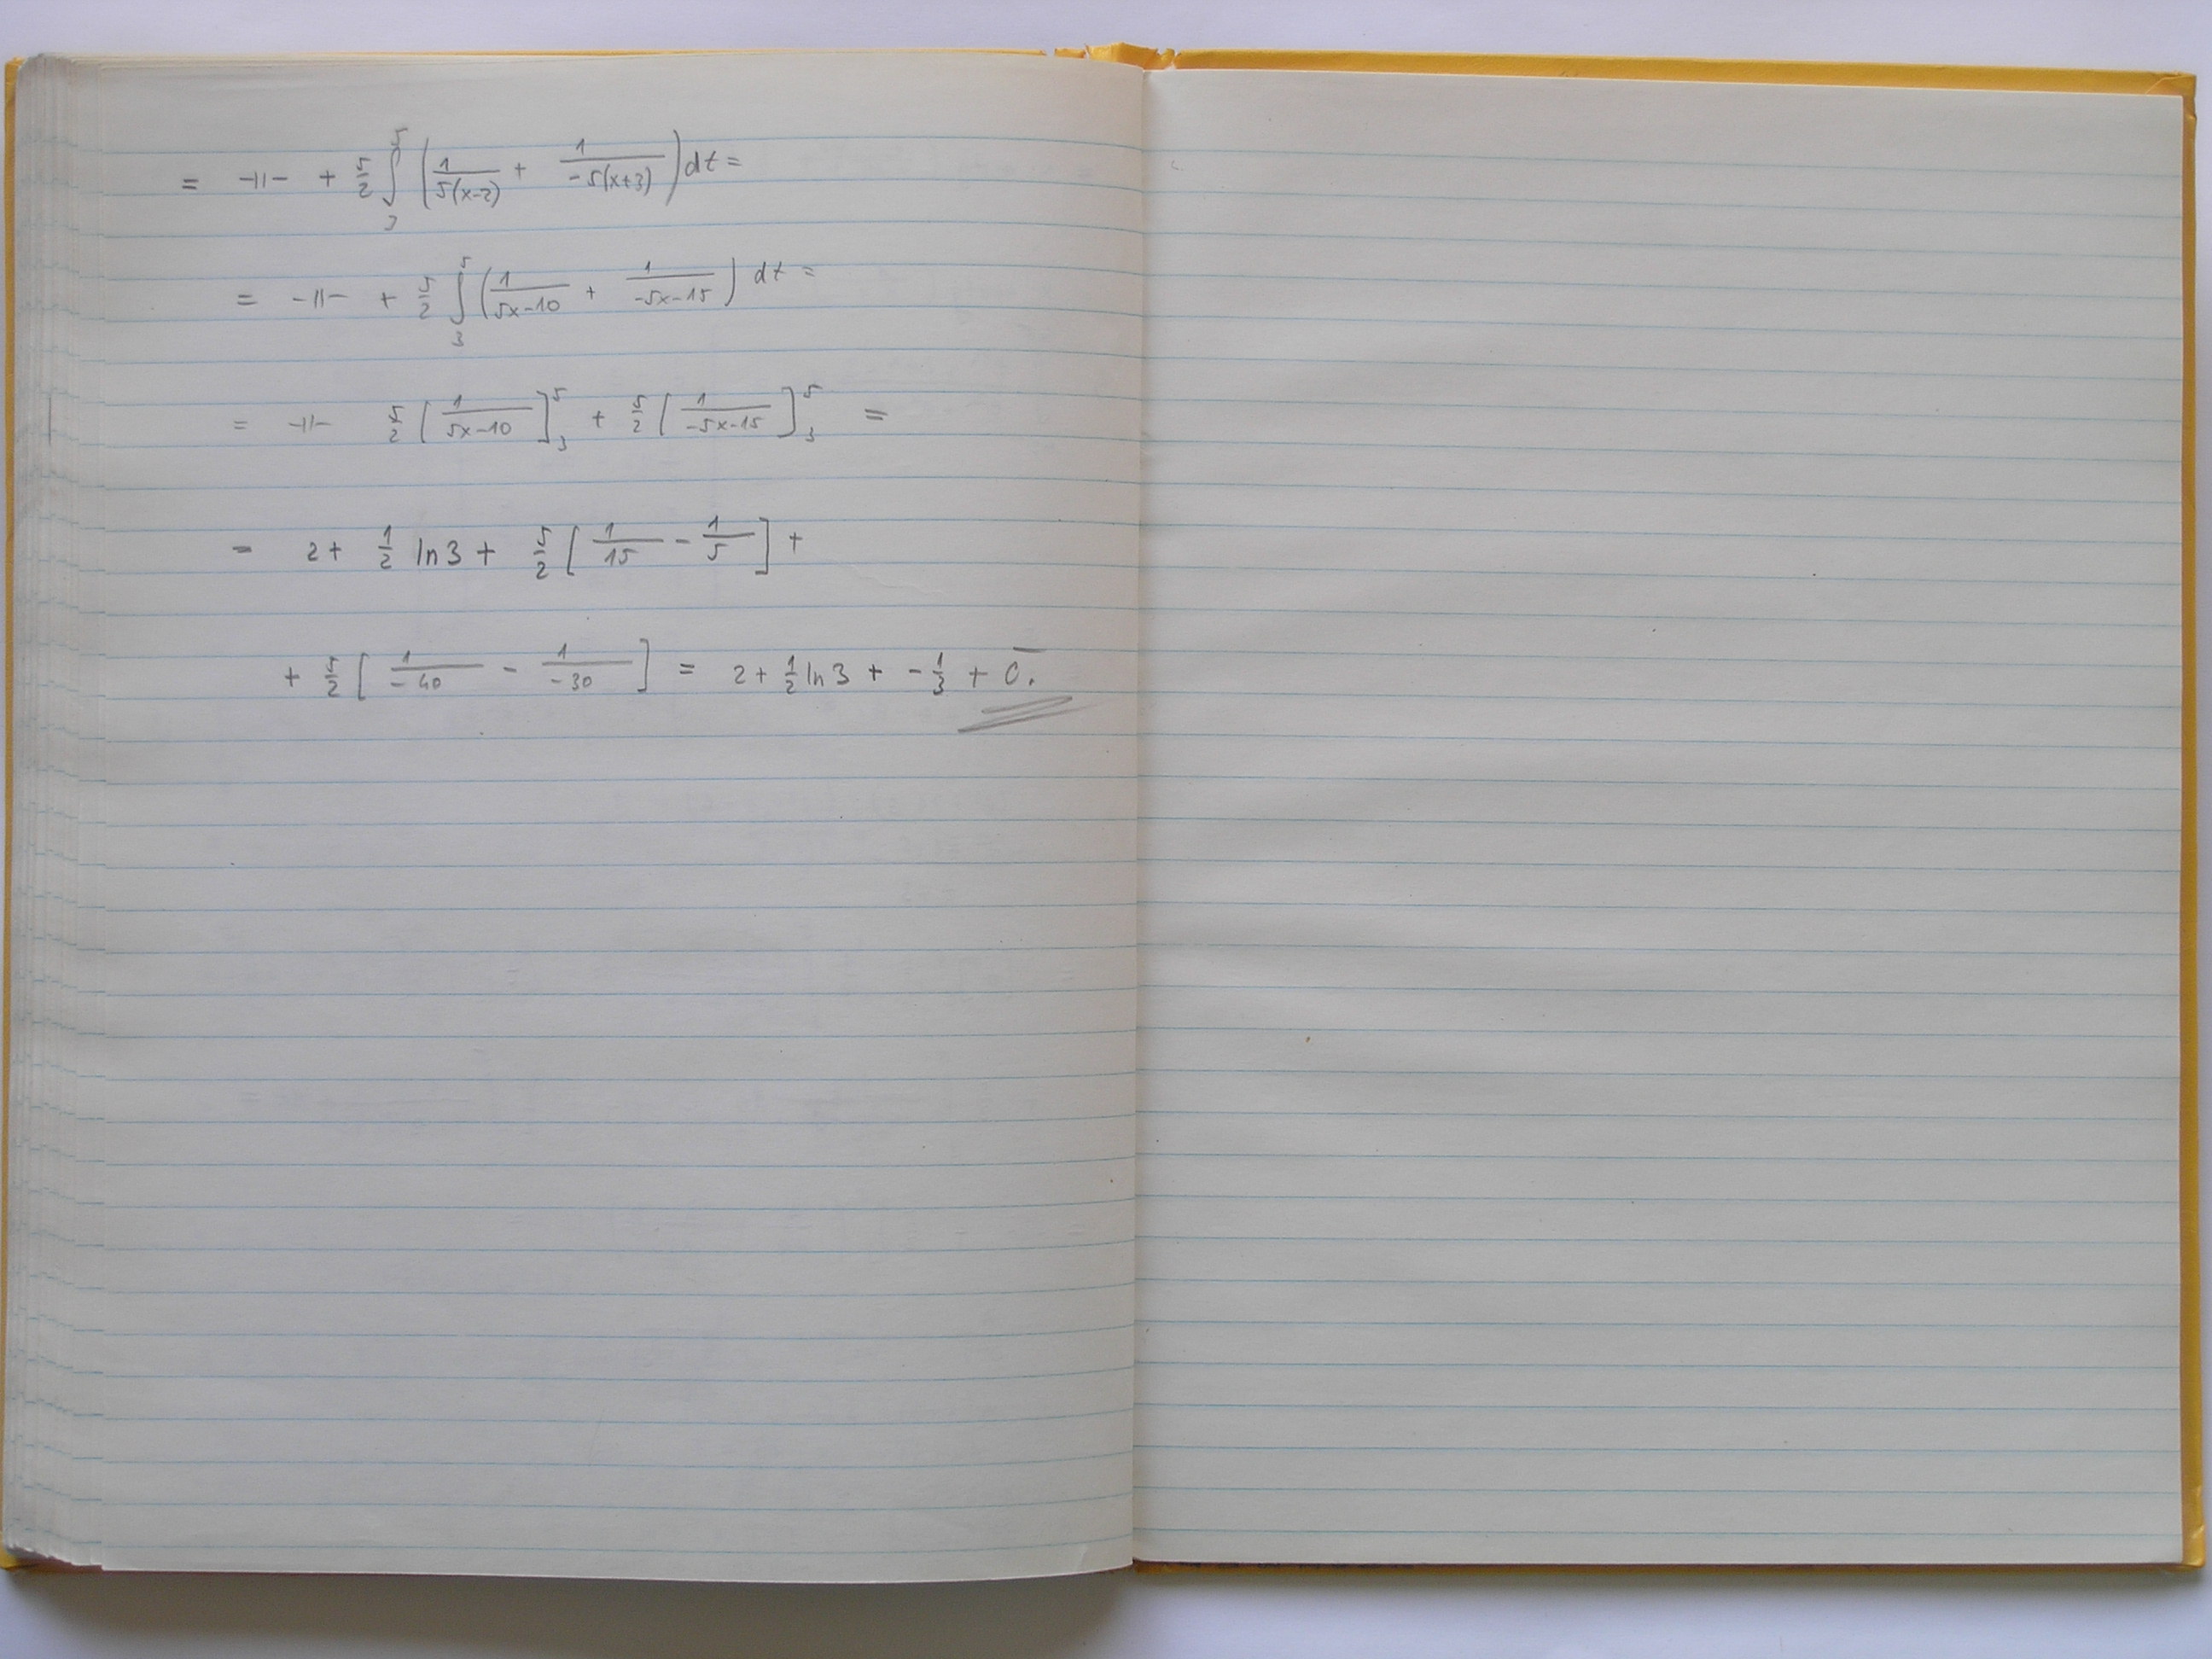 = -||- + 5/2 ∫₃⁵ (1/5(x-2) + 1/-5(x+3)) dt =
= -||- + 5/2 ∫₃⁵ (1/5x-10 + 1/-5x-15) dt =
= -||- 5/2 [1/5x-10]₃⁵ + 5/2 [1/-5x-15]₃⁵ =
= 2 + 1/2 ln 3 + 5/2 [1/15 - 1/5] +
+ 5/2 [1/-40 - 1/-30] = 2 + 1/2 ln 3 + - 1/3 + 0.